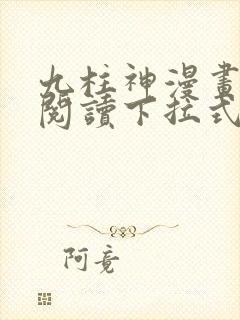 九柱神漫畫
閱讀下拉式
阿竟